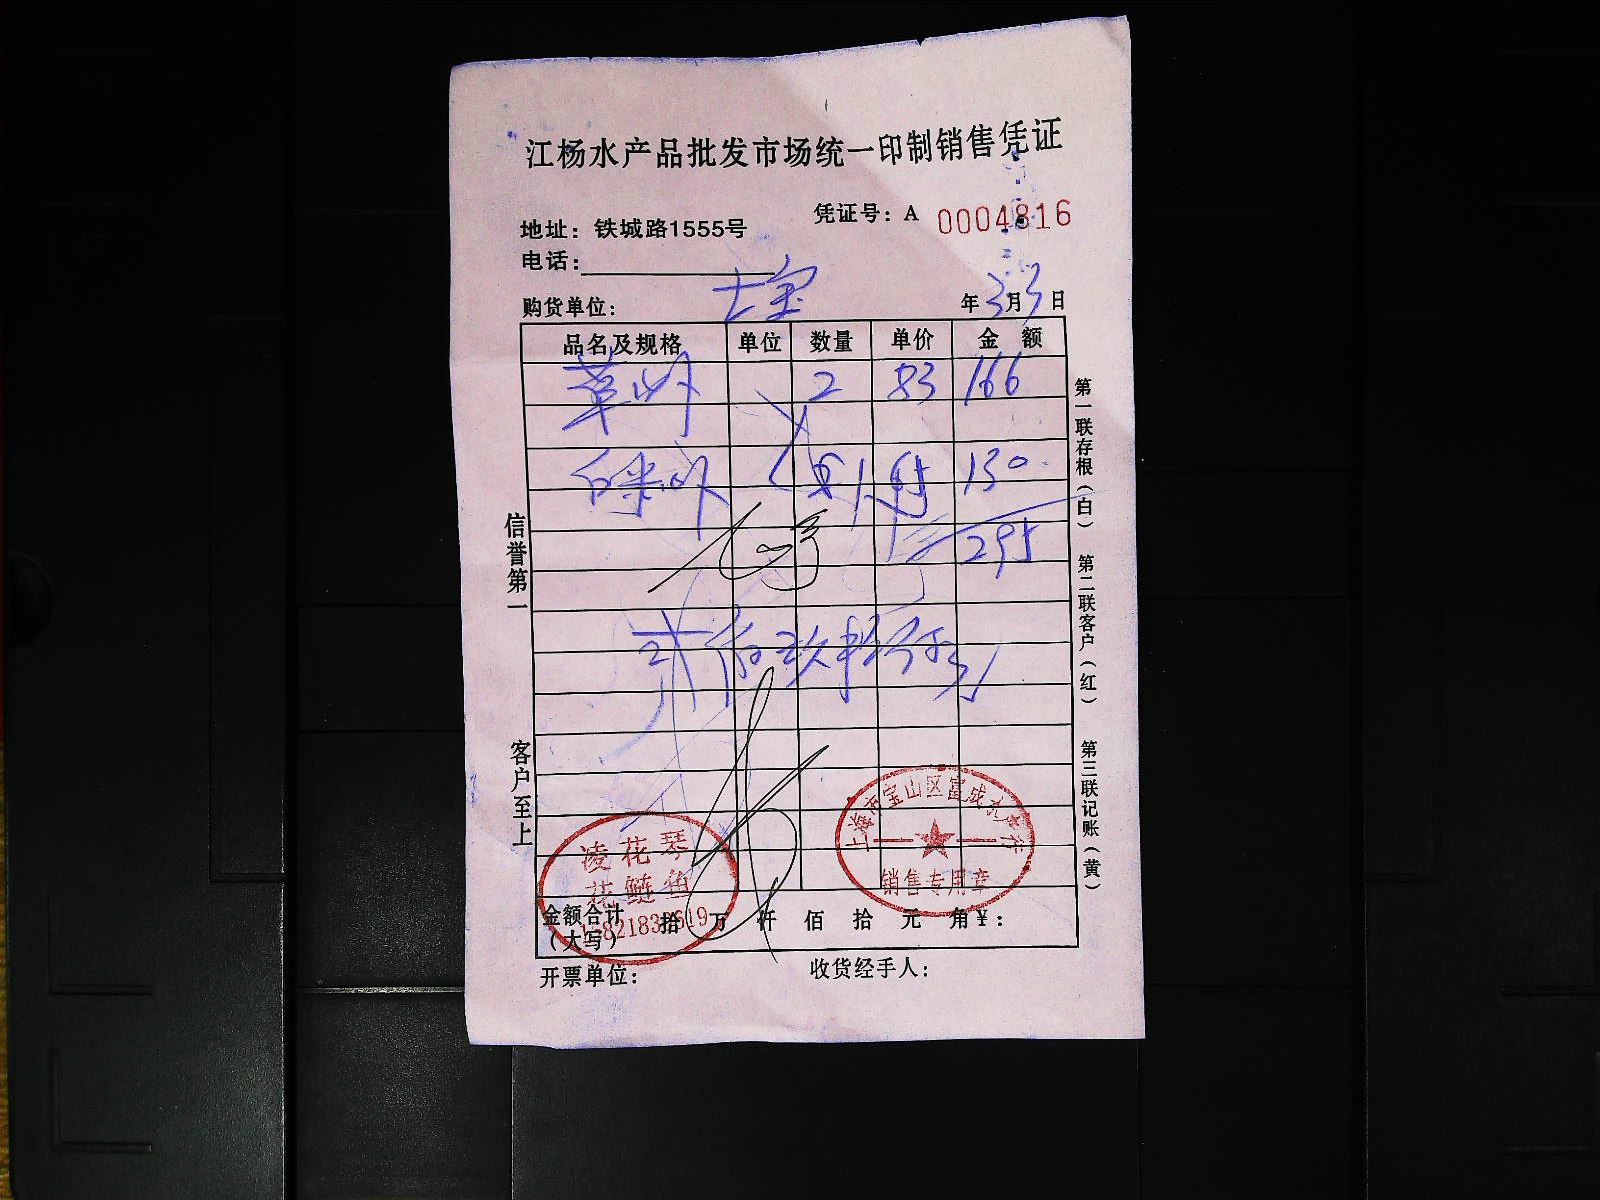 江杨水产品批发市场统一印制销售凭证
凭证号：A 0004816
地址：铁城路1555号
电话：
购货单位： 七宝 年 3月3日
品名及规格 单位 数量 单价 金 额
草 2 83 166
白 130
295
贰佰玖拾伍
信誉第一
客户至上
第一联存根（白）
第二联客户（红）
第三联记账（黄）
凌花琴
花鲢鱼
上海市宝山区富成水产行
销售专用章
金额合计（大写） 拾 万 仟 佰 拾 元 角 ¥：
开票单位： 收货经手人：